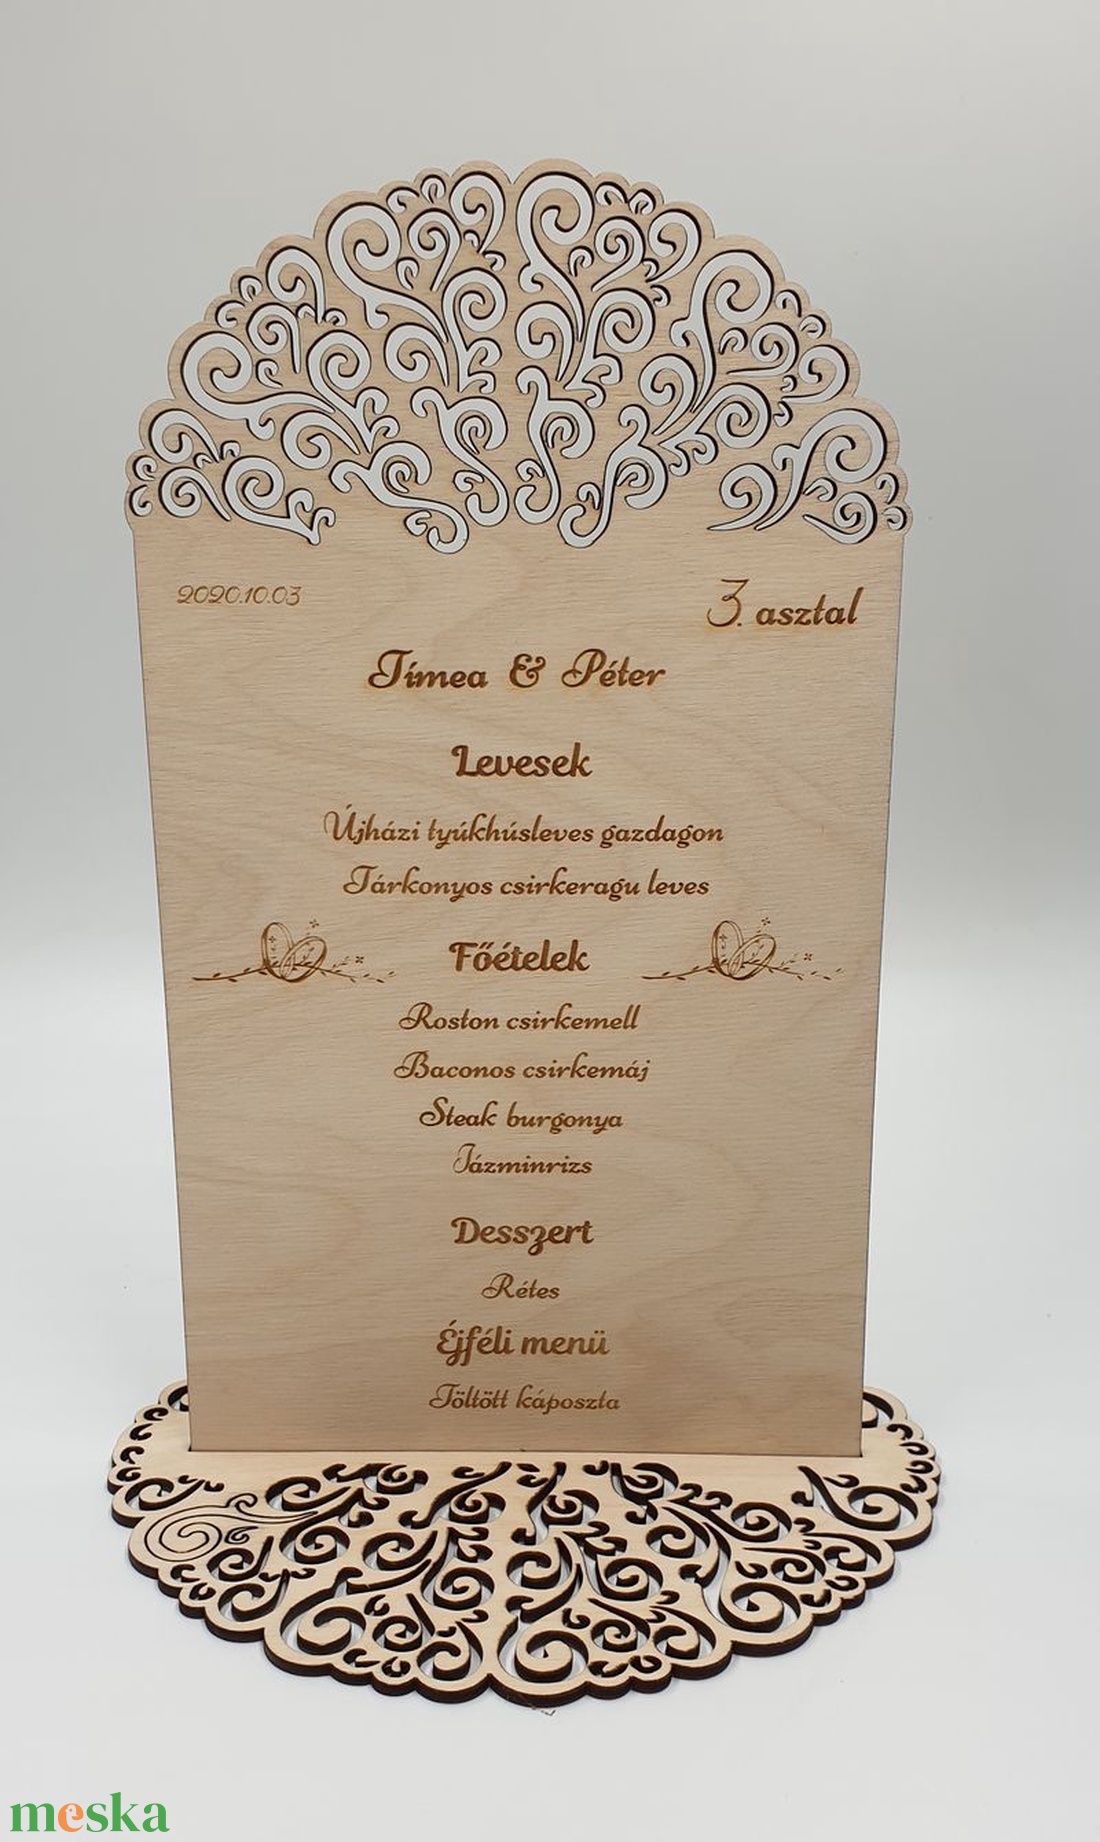 2020.10.03
3. asztal
Tímea & Péter
Levesek
Újházi tyúkhúsleves gazdagon
Tárkonyos csirkeragu leves
Főételek
Roston csirkemell
Baconos csirkemáj
Steak burgonya
Jázminrizs
Desszert
Rétes
Éjféli menü
Töltött káposzta
meska